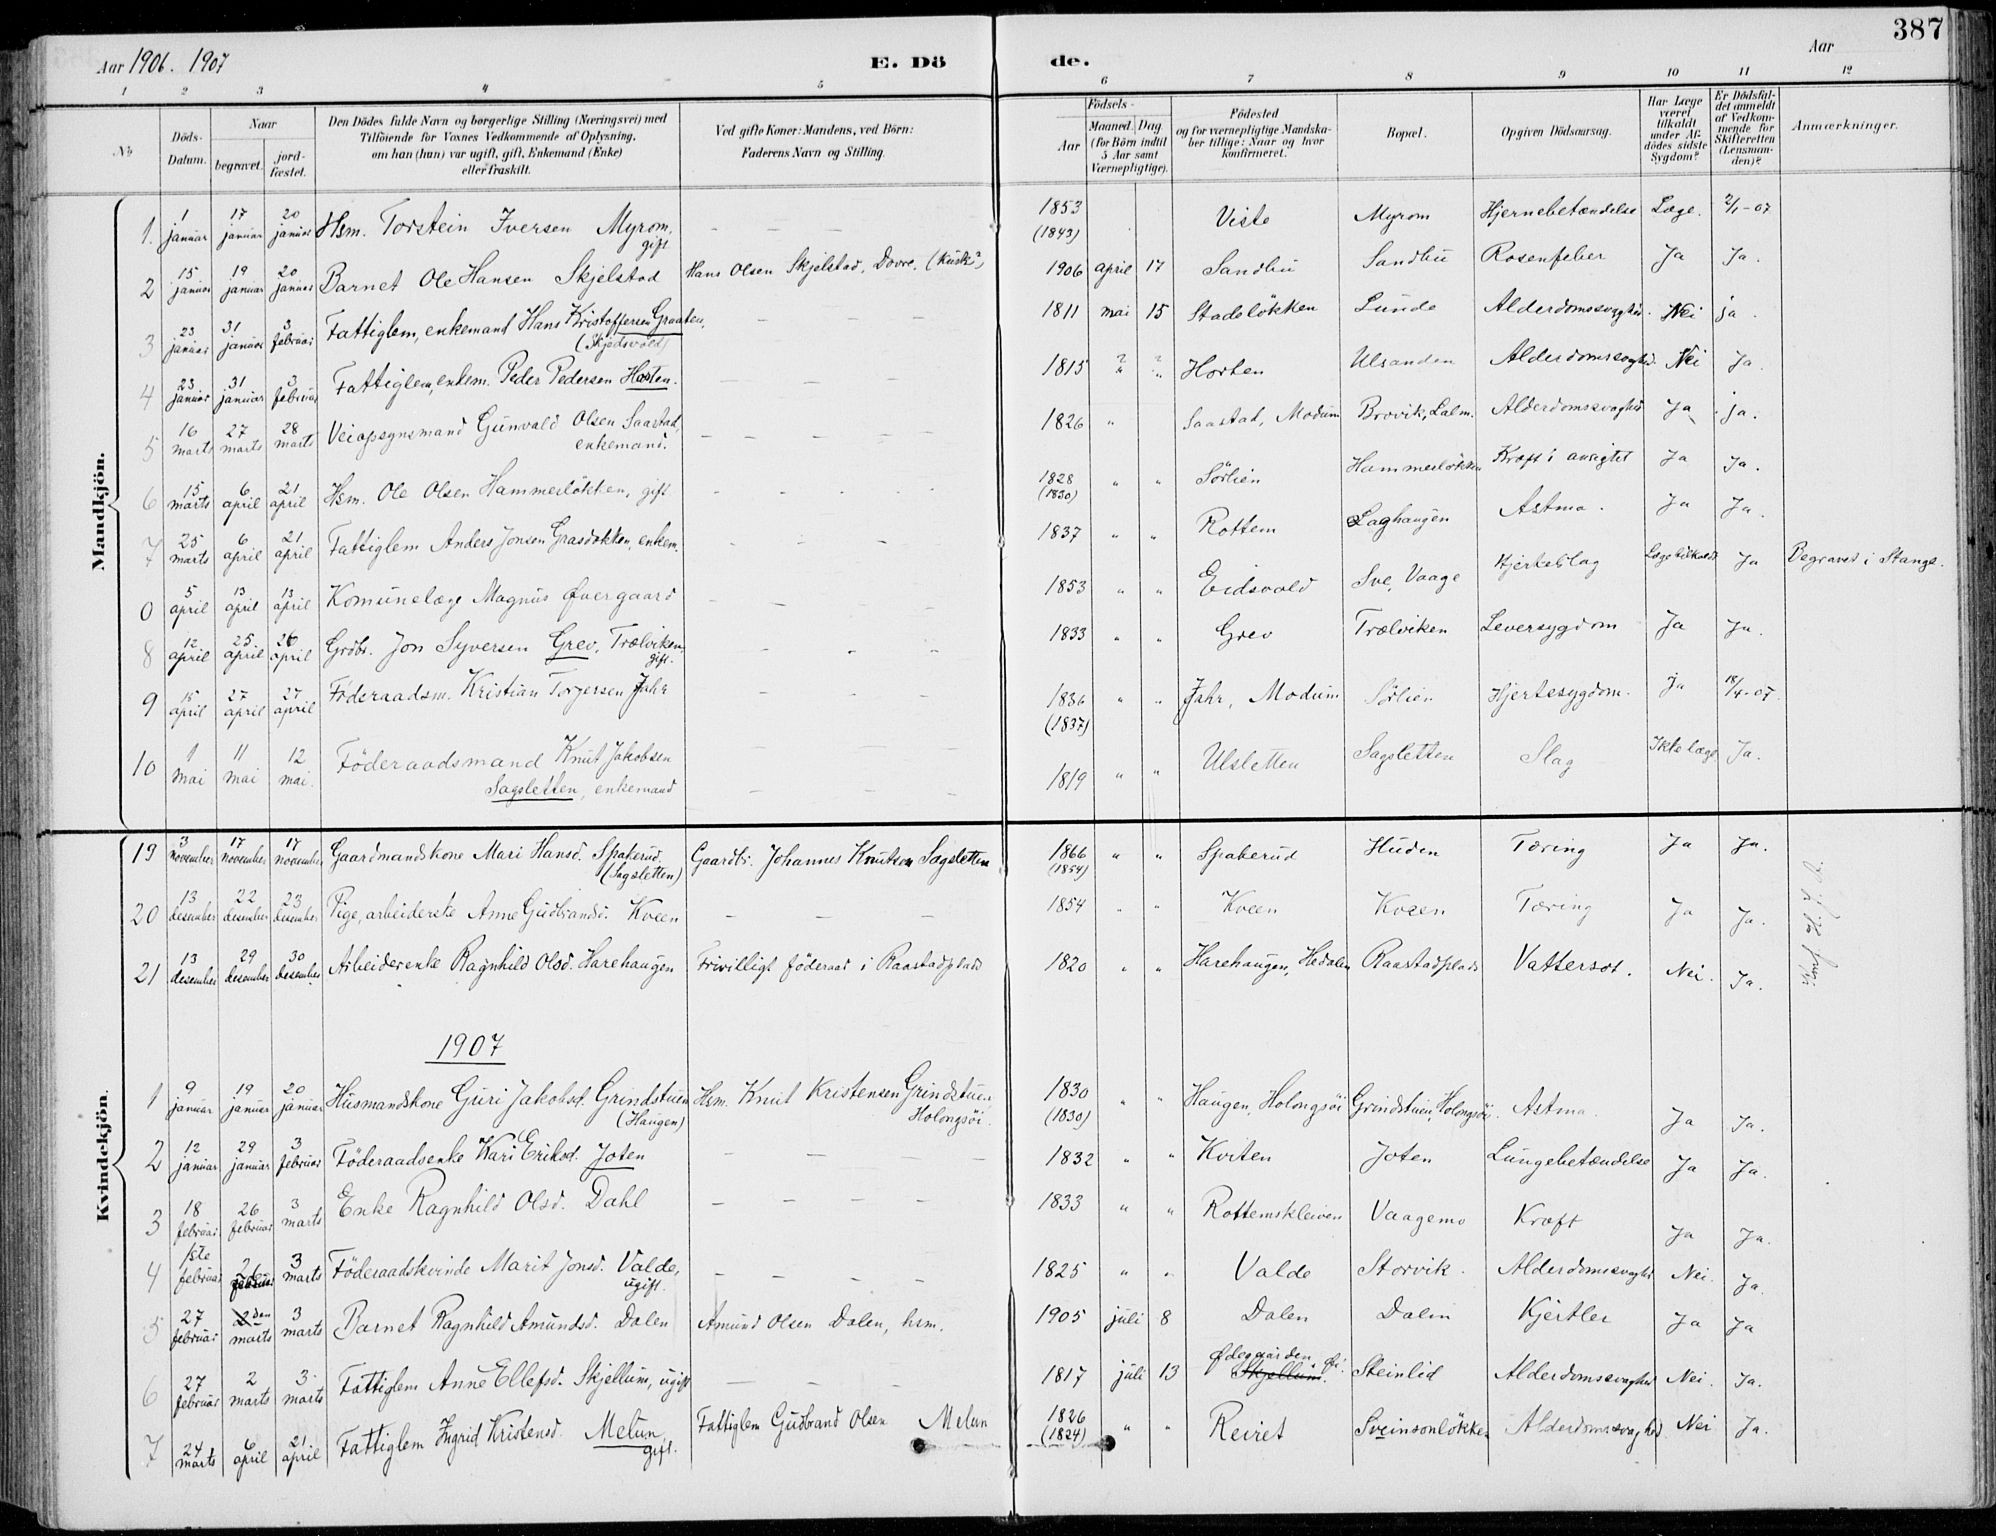 387
Aar 1906. 1907
E. Dö
de.
Aar
1 2 3 4 5 6 7 8 9 10 11 12
No
Döds-Datum.
Naar
begravet.
jord-fæstet.
Den Dödes fulde Navn og borgerlige Stilling (Næringsvei) med
Tilföiende for Voxnes Vedkommende af Oplysning,
om han (hun) var ugift, gift, Enkemand (Enke)
eller fraskilt.
Ved gifte Koner: Mandens, ved Börn:
Faderens Navn og Stilling.
Födsels-
Aar
Maaned. Dag
(for Börn indtil
5 Aar samt
Værnepligtige).
Födested
og for værnepligtige Mandska-
ber tillige: Naar og hvor
konfirmeret.
Bopæl.
Opgiven Dödsaarsag.
Har Læge
været
tilkaldt
under Af-
dödes sidste
Sygdom?
Er Dödsfal-
det anmeldt
af Vedkom-
mende for
Skifteretten
(Lensman-
den)?
Anmærkninger.
Mandkjön.
1. 1 januar 17 januar 20 januar Hsm. Torstein Iversen Myrom, gift 1853 (1843) Viste Myrom Hjernebetændelse Læge. 2/1-07
2 15 januar 19 januar 20 januar Barnet Ole Hansen Skjelstad Hans Olsen Skjelstad, Dovre. (Kusk?) 1906 april 17 Sandbu Sandbu Rosenfeber Ja Ja.
3 23 januar 31 januar 3 februar Fattiglem, enkemand Hans Kristoffersen Graaten, (Skjedsvold) 1811 mai 15 Stadsløkken Lunde Alderdomssvaghed. Nei ja.
4 23 januar 31 januar 3 februar Fattiglem, enkem. Peder Pedersen Horten. 1815 ? ? Horten Ulsanden Alderdomssvaghed. Nei Ja.
5 16 marts 27 marts 28 marts Veiopsynsmand Gunvald Olsen Saastad, enkemand. 1826 " Saastad, Modum Brovik, Lalm. Alderdomssvaghed Ja ja.
6 15 marts 6 april 21 april Hsm. Ole Olsen Hammerløkken, gift 1828 (1830) " " Sørlien Hammerløkken Kræft i ansigtet Ja Ja.
7 25 marts 6 april 21 april Fattiglem Anders Jonsen Grasdokken, enkem. 1837 " " Rottem Laghaugen Astma. Ja Ja.
0 5 april 13 april 13 april Komunelæge Magnus Øvergaard 1853 " " Eidsvold Sve, Vaage Hjerteslag Læge tilkaldt Ja Begravet i Stange.
8 12 april 25 april 26 april Grdbr. Jon Syversen Grev, Trælviken, gift. 1833 " " Grev Trælviken Leversygdom Ja Ja.
9 15 april 27 april 27 april Föderaadsm. Kristian Torjersen Jahr 1836 (1837) " " Jahr, Modum Sørlien Hjertesygdom. Ja 18/4-07.
10 1 mai 11 mai 12 mai. Föderaadsmand Knut Jakobsen Sagsletten, enkemand 1819 " " Ulsletten Sagsletten Slag Ikke læge Ja.
Kvindekjön.
19 3 november 17 november 17 november Gaardmandskone Mari Hansd. Spakerud. (Sagsletten) Gaardbr. Johannes Knutsen Sagsletten 1866 (1854) " " Spakerud Huden Tæring Ja Ja.
20 13 desember 22 desember 23 desember Pige, arbeiderske Anne Gudbrandsd. Kveen 1854 " " Kveen Kveen Tæring Ja Ja.
21 13 desember 29 desember 30 desember Arbeiderenke Ragnhild Olsd. Harehaugen Frivilligt föderaad i Raastadplads 1820 " " Harehaugen, Hedalen Raastadplads Vattersot. Nei. Ja.
1907
1 9 januar 19 januar 20 januar Husmandskone Guri Jakobsd. Grindstuen (Haugen) Hsm. Knut Kristensen Grindstuen Holongsöi. 1830 (1830) " " Haugen, Holongsöi Grindstuen, Holongsöi. Astma. Ja Ja.
2 12 januar 29 januar 3 februar Föderaadsenke Kari Eriksd. Joten 1832 " " Kviten Joten Lungebetændelse Ja Ja.
3 18 februar 26 februar 3 marts Enke Ragnhild Olsd. Dahl 1833 " " Rottemskleiven Vaagemo Kræft Ja Ja.
4 1ste februar 26 februar 3 marts Föderaadskvinde Marit Jonsd. Valde, ugift. 1825 " " Valde Storvik. Alderdomssvaghed Nei. Ja.
5 27 februar 2den marts 3 marts Barnet Ragnhild Amundsd. Dalen Amund Olsen Dalen, hsm. 1905 juli 8 Dalen Dalen Kjertler Ja Ja
6 27 februar 2 marts 3 marts Fattiglem Anne Ellefsd. Skjellum, ugift 1817 juli 13 Ødegaarden Skjellum. Steinlid Alderdomssvaghed Nei. Ja.
7 24 marts 6 april 21 april Fattiglem Ingrid Kristensd. Melun, gift. Fattiglem Gudbrand Olsen Melun 1826 (1824) " " Reiret Sveinsonløkken Alderdomssvaghed Nei Ja.